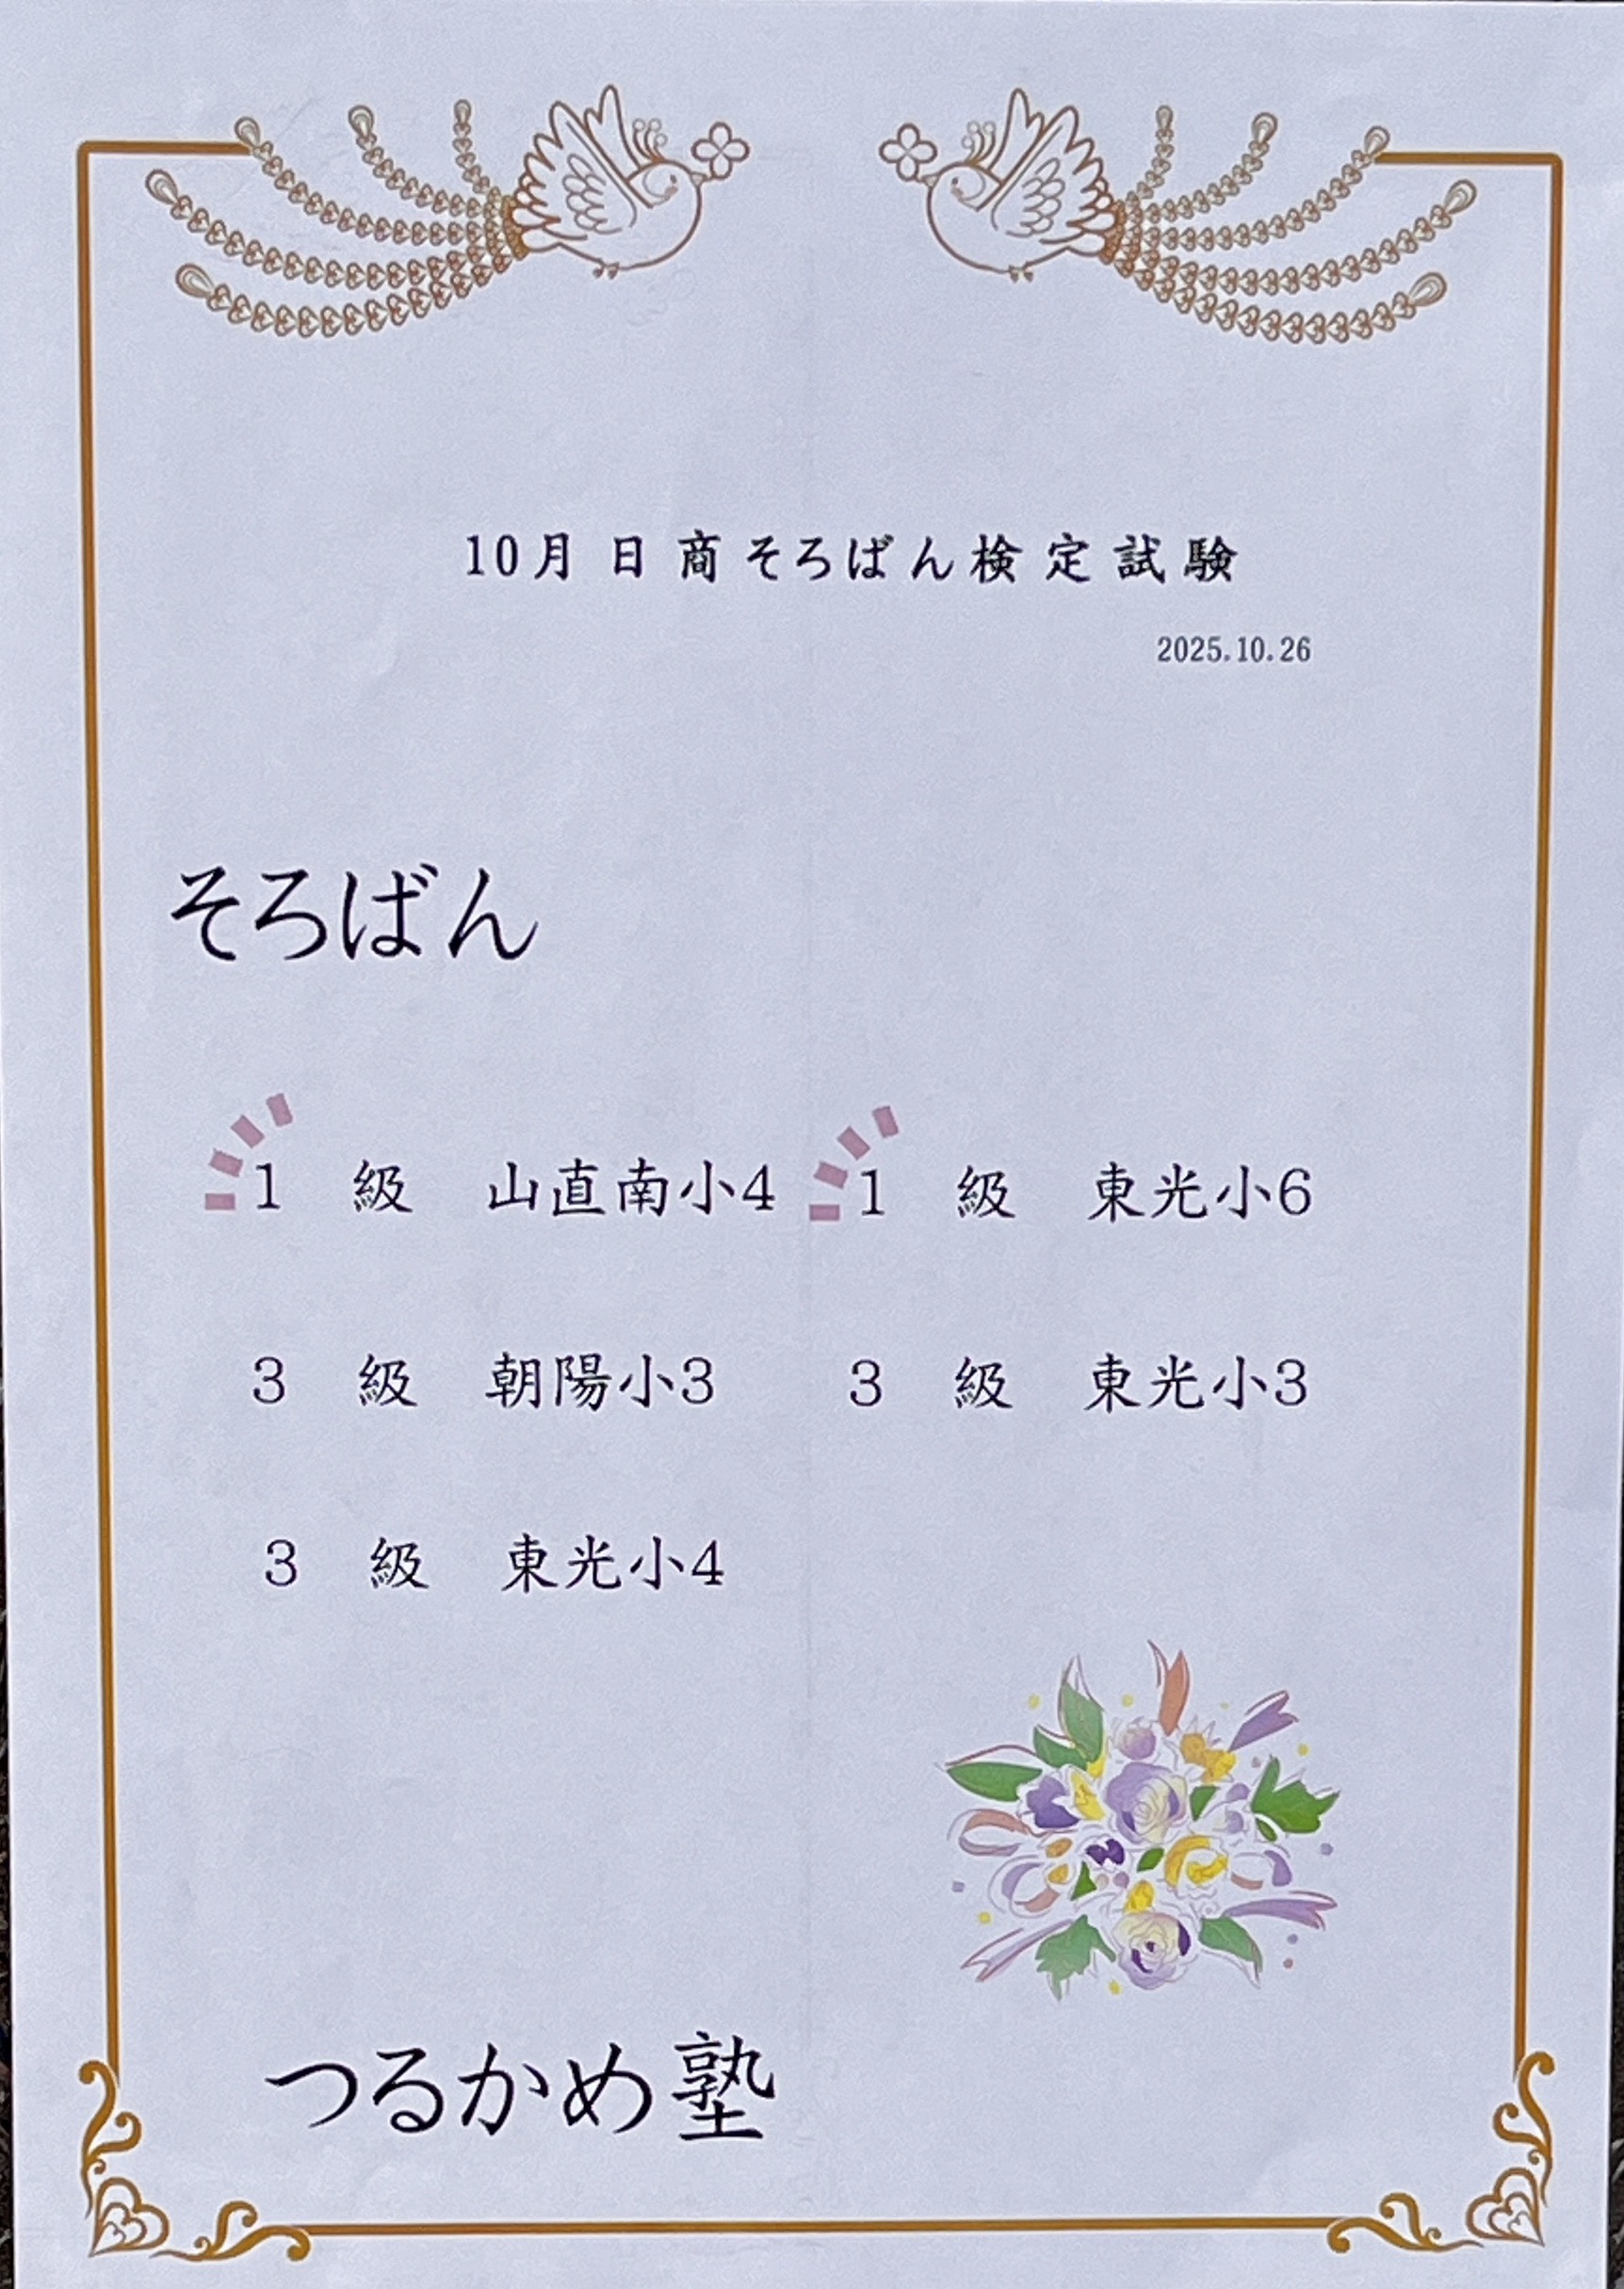 10月 日商そろばん検定試験
2025.10.26
そろばん
1 級 山直南小4 1 級 東光小6
3 級 朝陽小3 3 級 東光小3
3 級 東光小4
つるかめ塾